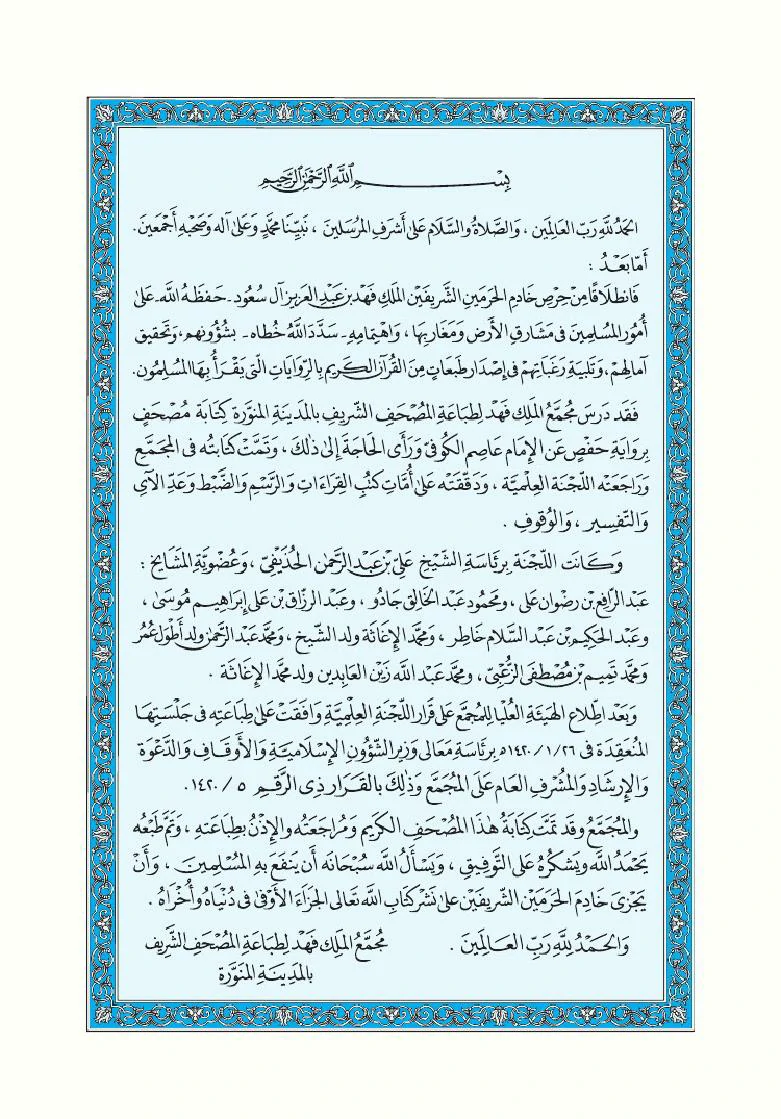 بِسْــــــــــــمِ ٱللَّهِ ٱلرَّحْمَٰنِ ٱلرَّحِيمِ
الحَمْدُ لِلَّهِ رَبِّ العَالَمِينَ ، وَالصَّلَاةُ والسَّلَام عَلىٰ أَشْرَفِ المُرْسَلينَ ، نَبِيِّنَا محمَّدٍ وَعَلىٰ آله وَصَحْبِهِ أَجْمَعِينَ.
أَمَّا بَعْـدُ :
فَانطلَاقًا مِنْ حِرصِ خَادِمِ الحَرَمَينِ الشَّرِيفَيْنِ المَلِكِ فَهْد بْن عَبْدِ العَزِيز آل سُعُود ـ حَفظَهُ الله ـ عَلىٰ
أُمُورِ المُسلِمينَ فى مَشَارِقِ الأَرْضِ وَمَغَاربِهَا ، وَاهْتِمَامِهِ ـ سَدَّدَ اللَّهُ خُطاه ـ بشُؤُونهم ، وَتحْقيق
آمالِهمْ ، وَتَلبيَةِ رَغَبَاتِهِمْ فى إِصْدَار طَبَعَاتٍ مِنَ القُرْآنِ الكَرِيم بِالرِّوَايَاتِ الَّتى يَقْـرَأُ بِهَا المُسْلِمُون.
فَقَد دَرَسَ مُجَمَّعُ المَلِك فَهْد لِطبَاعَةِ المُصْحَفِ الشَّرِيفِ بالمَدينَةِ المنوَّرة كِتَابَة مُصْحَفٍ
بِروَايَةِ حَفْصٍ عَن الإِمَام عَاصِم الكُوفىّ وَرَأَى الحَاجَة إِلىٰ ذٰلكَ ، وَتَمَّتْ كتَابتُه فى المجَمَّع
وَرَاجَعَتْه اللّجْنَة العِلْمِيَّة ، وَدَقَّقَتْه عَلىٰ أُمَّاتِ كتُبِ القِرَاءَاتِ وَالرَّسْمِ وَالضَّبْط وَعَدِّ الآيِ
وَالتَّفسِير ، وَالوُقوفِ .
وَكَانَت اللّجْنَة بِرئَاسَةِ الشَّيْخ عَلىّ بْن عَبْد الرَّحمٰن الحُذَيْفىّ ، وَعُضْوِيَّةِ المَشَايخ :
عَبْد الرَّافِع بْن رضْوَان عَلى ، ومحْمُود عَبْد الخَالِق جَادُو ، وعَبْد الرزّاق بْن عَلى إِبْرَاهِيم مُوسَىٰ ،
وعَبْد الحَكِيم بْن عَبْد السَّلَام خَاطِر ، وَمحمَّد الإِغَاثَة ولد الشَّيخ ، وَمحمَّد عَبْد الرَّحمٰن ولد أَطْوَل عُمُر
وَمحمَّد تَمِيم بْن مُصْطَفَى الزُّعْبىّ ، ومحمَّد عَبْد الله زَيْن العَابِدين ولد محمَّد الإِغَاثَة .
وَبَعْد اطِّلاع الهَيْئَةِ العُلْيَا لِلمُجَمَّع عَلىٰ قَرَار اللّجْنَةِ العِلمِيَّةِ وَافَقَتْ عَلىٰ طِبَاعَتِهِ فى جَلْسَتِهَا
المُنْعَقِدَة فى ٢٦/ ١/ ١٤٢٠ه بِرئَاسَةِ مَعَالى وَزِير الشُّؤُونِ الإِسْلَامِيَّةِ وَالأَوْقَـافِ وَالدَّعْوَة
وَالإِرشَادِ وَالمُشْرِفِ العَام عَلَى المُجَمَّع وَذٰلِكَ بالقَـرَار ذِى الرَّقَم ٥ / ١٤٢٠ .
والمُجَمَّعُ وَقَد تَمَّت كِتَابَةُ هٰذَا المُصْحَفِ الكَرِيم وَمُرَاجَعَتُه وَالإِذْنُ بِطِبَاعَتِهِ ، وَتَمَّ طَبْعُه
يَحْمَدُ اللهَ وَيَشكُرُهُ عَلى التَّوفِيقِ ، وَيَسْأَلُ الله سُبْحَانَه أَن يَنفَعَ بِهِ المُسْلِمِينَ ، وَأَنْ
يَجْزِىَ خَادِمَ الحَرَمَيْن الشَّرِيفَيْن عَلىٰ نَشْر كتَابِ الله تَعَالى الجَزَاءَ الأَوْفى فى دُنْيَاهُ وَأُخْرَاهُ .
وَالحَمْدُ لِلَّهِ رَبِّ العَالَمِينَ . مُجَمَّعُ المَلِك فَهْد لِطِبَاعَةِ المُصْحَفِ الشَّرِيف
بالمَدِينَةِ المُنَوَّرَة